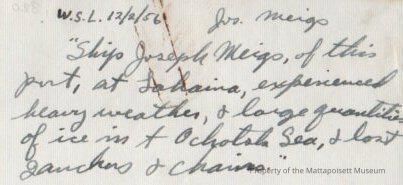 W.S.L. 12/2/56 Jos. Meigs
"Ship Joseph Meigs, of this
port, at Lahaina, experienced
heavy weather, & large quantities
of ice in t Ochotsk Sea, & lost
2 anchors & chains"
Property of the Mattapoisett Museum